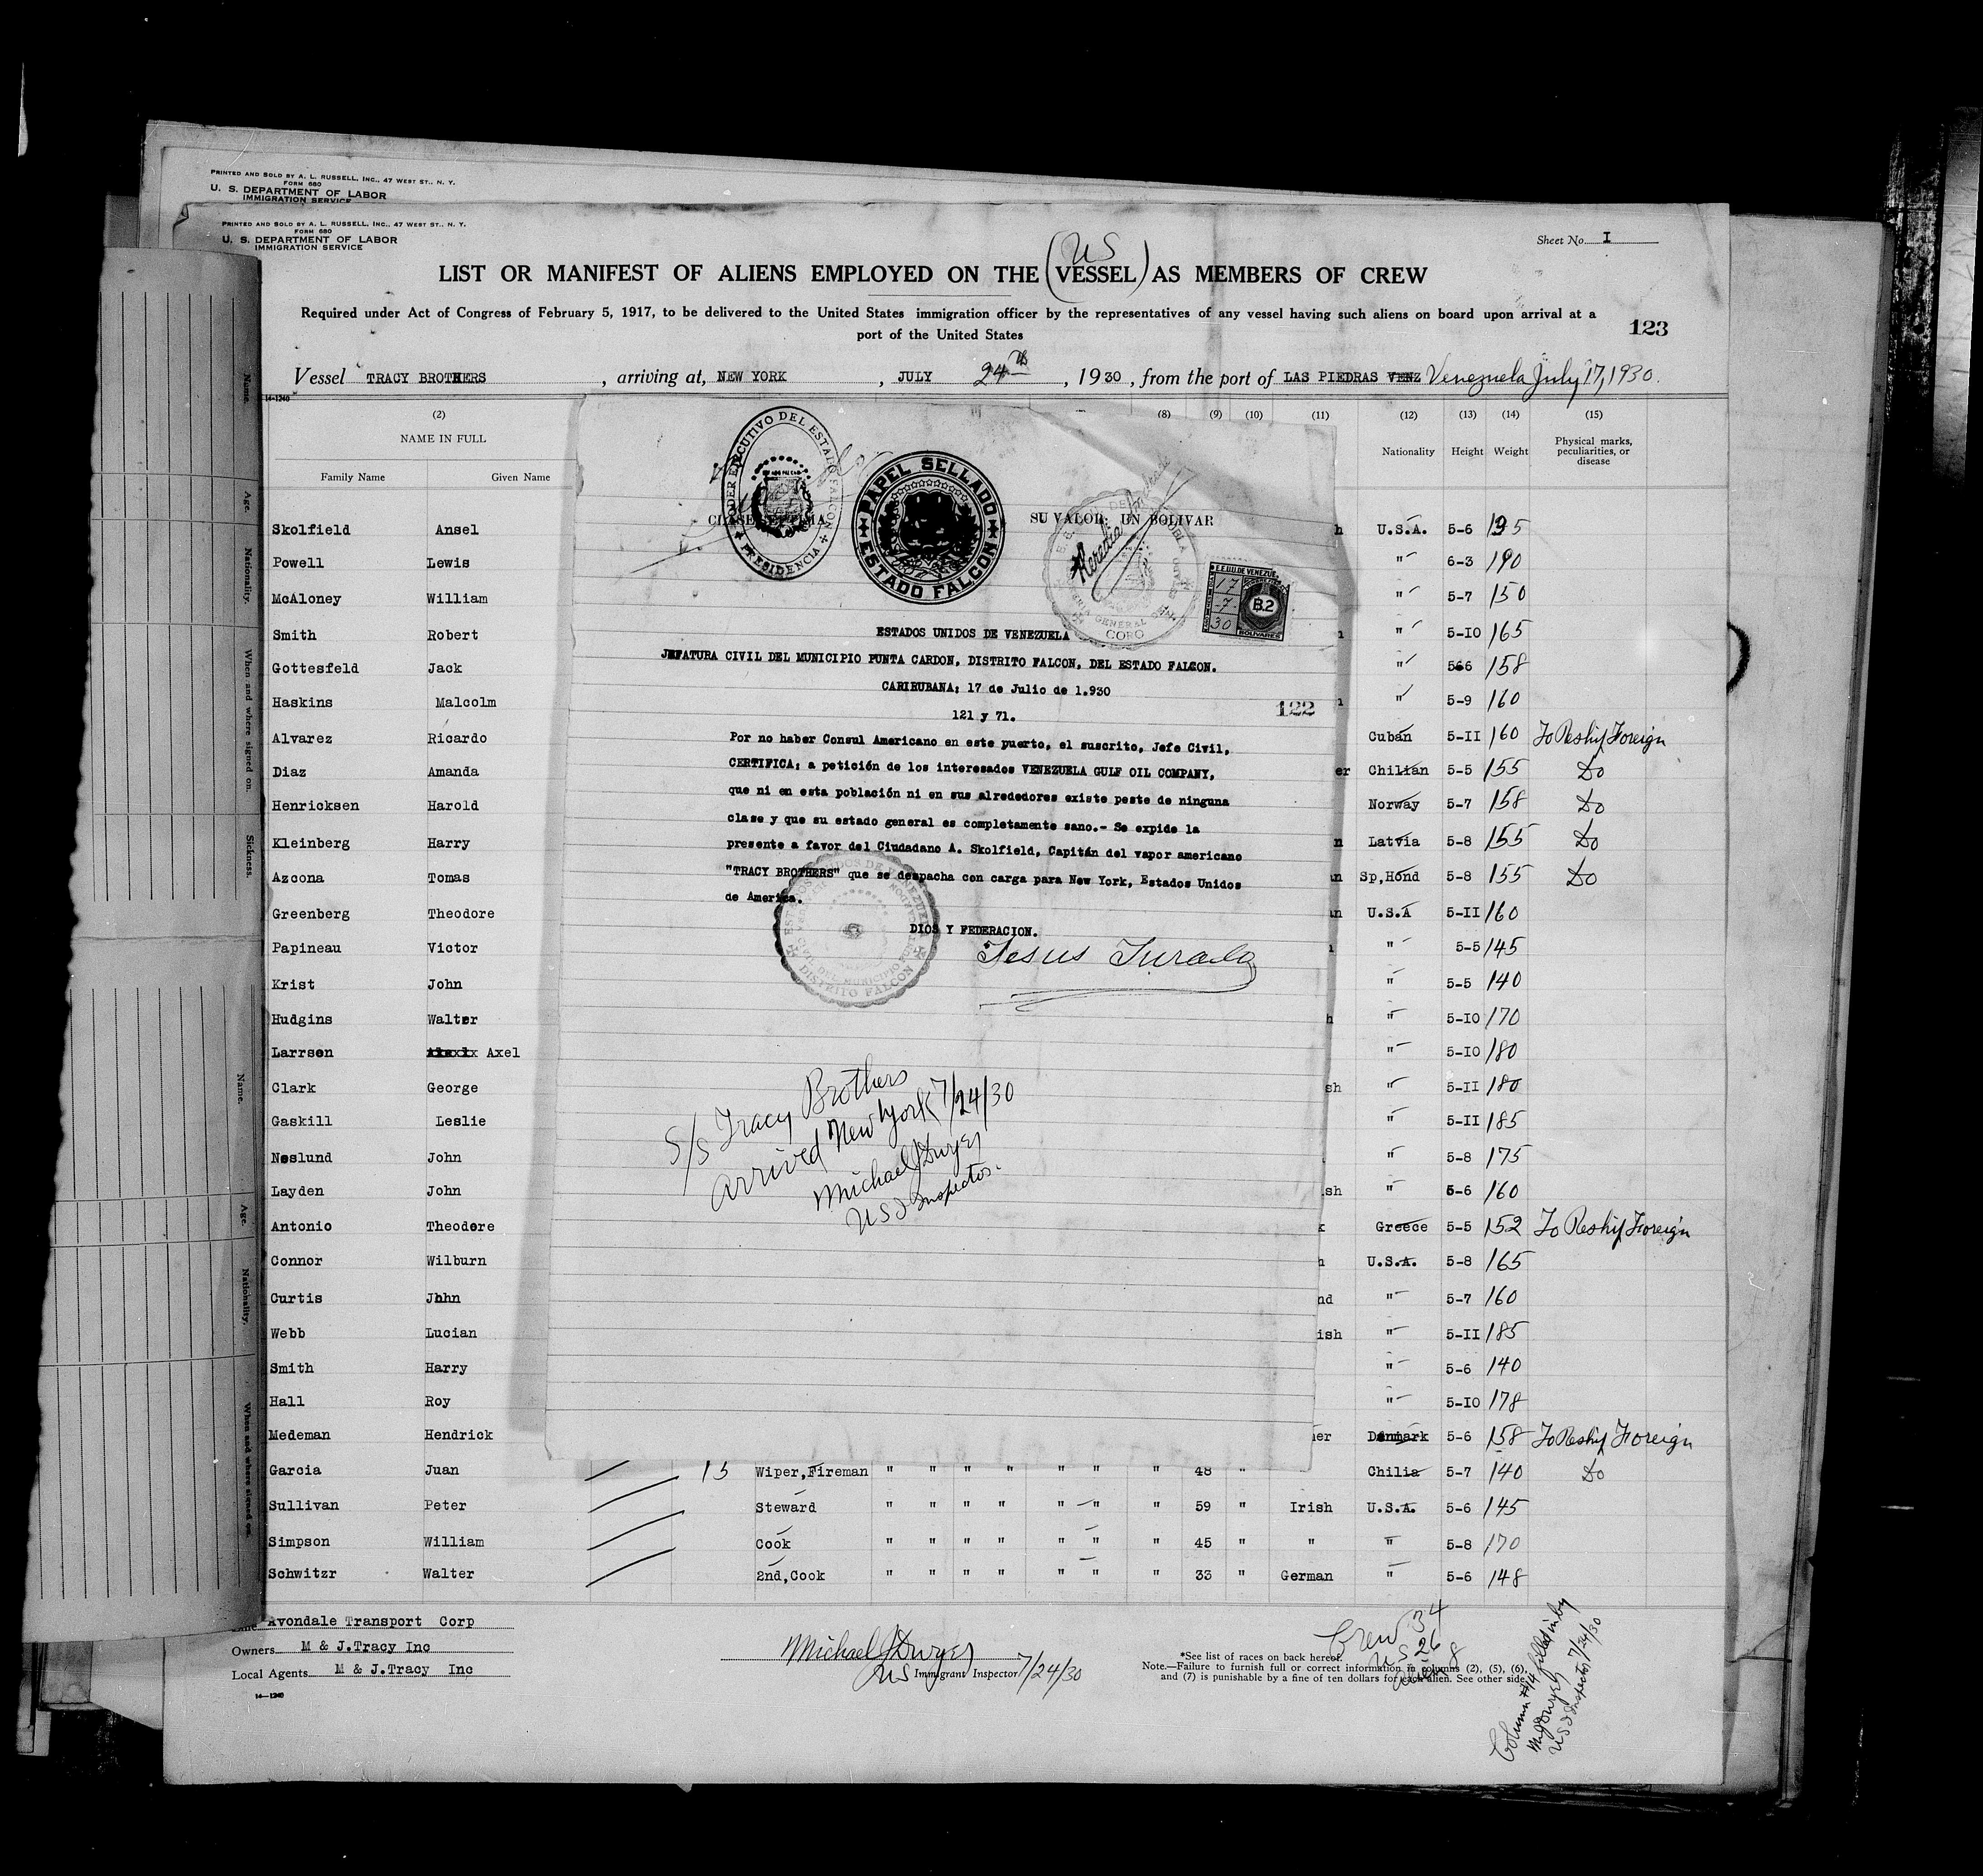 PRINTED AND SOLD BY A. L. RUSSELL, INC., 47 WEST ST., N. Y.
FORM 680
U. S. DEPARTMENT OF LABOR
IMMIGRATION SERVICE
PRINTED AND SOLD BY A. L. RUSSELL, INC., 47 WEST ST., N. Y.
FORM 680
U. S. DEPARTMENT OF LABOR
IMMIGRATION SERVICE
Sheet No. I
US
LIST OR MANIFEST OF ALIENS EMPLOYED ON THE (VESSEL) AS MEMBERS OF CREW
Required under Act of Congress of February 5, 1917, to be delivered to the United States immigration officer by the representatives of any vessel having such aliens on board upon arrival at a
port of the United States
123
Vessel TRACY BROTHERS, arriving at, NEW YORK, JULY 24th, 1930, from the port of LAS PIEDRAS VENZ Venezuela July 17, 1930.
14-1240
(2) (8) (9) (10) (11) (12) (13) (14) (15)
NAME IN FULL
Family Name Given Name
Nationality Height Weight Physical marks, peculiarities, or disease
Skolfield Ansel h U.S.A. 5-6 195
Powell Lewis " 6-3 190
McAloney William " 5-7 150
Smith Robert " 5-10 165
Gottesfeld Jack " 566 158
Haskins Malcolm " 5-9 160
Alvarez Ricardo Cuban 5-II 160 To Reship Foreign
Diaz Amanda er Chilian 5-5 155 Do
Henricksen Harold Norway 5-7 158 Do
Kleinberg Harry n Latvia 5-8 155 Do
Azcona Tomas an Sp,Hond 5-8 155 Do
Greenberg Theodore an U.S.A 5-II 160
Papineau Victor " 5-5 145
Krist John " 5-5 140
Hudgins Walter h " 5-I0 170
Larrsen Axel " 5-I0 180
Clark George sh " 5-II 180
Gaskill Leslie " 5-II 185
Neslund John " 5-8 175
Layden John sh " 5-6 160
Antonio Theodore k Greece 5-5 152 To Reship Foreign
Connor Wilburn h U.S.A. 5-8 165
Curtis Jhhn nd " 5-7 160
Webb Lucian ish " 5-II 185
Smith Harry " 5-6 140
Hall Roy " 5-I0 178
Medeman Hendrick er Denmark 5-6 158 To Reship Foreign
Garcia Juan 15 Wiper,Fireman " " " " " " " 48 " Chilia 5-7 140 Do
Sullivan Peter Steward " " " " " " " 59 " Irish U.S.A. 5-6 145
Simpson William Cook " " " " " " " 45 " " " 5-8 170
Schwitzr Walter 2nd,Cook " " " " " " " 33 " German " 5-6 148
PODER EJECUTIVO DEL ESTADO FALCON
PRESIDENCIA
PAPEL SELLADO
ESTADO FALCON
CLASE SEPTIMA
SU VALOR: UN BOLIVAR
CORO
E.E.U.U. DE VENEZUELA
17
-7-
30
B.2
BOLIVARES
ESTADOS UNIDOS DE VENEZUELA
JEFATURA CIVIL DEL MUNICIPIO PUNTA CARDON, DISTRITO FALCON, DEL ESTADO FALCON.
CARIRUBANA; 17 de Julio de 1.930
121 y 71.
122
Por no haber Consul Americano en este puerto, el suscrito, Jefe Civil,
CERTIFICA; a petición de los interesados VENEZUELA GULF OIL COMPANY,
que ni en esta población ni en sus alrededores existe peste de ninguna
clase y que su estado general es completamente sano.- Se expide la
presente a favor del Ciudadano A. Skolfield, Capitán del vapor americano
"TRACY BROTHERS" que se despacha con carga para New York, Estados Unidos
de America.
DIOS Y FEDERACION.
Jesus Jurado
DISTRITO FALCON
S/S Tracy Brothers
arrived New York 7/24/30
Michael J Dwyer
US I Inspector.
Name.
Age.
Nationality.
When and where signed on.
Sickness.
Name.
Age.
Nationality.
When and where signed on.
Avondale Transport Corp
Owners M & J.Tracy Inc
Local Agents M & J.Tracy Inc
14-1240
Michael J Dwyer
US Immigrant Inspector 7/24/30
*See list of races on back hereof.
Note.—Failure to furnish full or correct information in columns (2), (5), (6),
and (7) is punishable by a fine of ten dollars for each alien. See other side.
Crew 34
US 26
8
Column #14 filled in by
M J Dwyer 7/24/30
US I Inspector